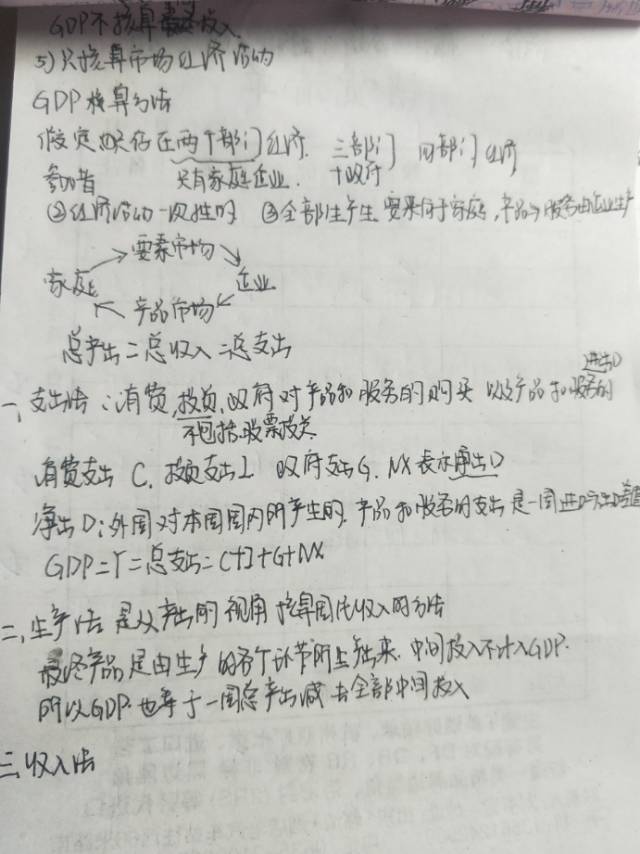 GDP不核算 投入
5)只核算市场经济活动
GDP核算方法
假定只存在两个部门经济. 三部门 四部门经济
参加者 只有家庭企业. +政府
②经济活动一次性的 ③全部生产 要素属于家庭,产品与服务由企业生产
要素市场
家庭 企业
产品市场
总产出=总收入=总支出
进出口
一,支出法:消费,投资,政府对产品和服务的购买 以及产品和服务的
不包括股票投资
消费支出 C, 投资支出I 政府支出G, NX表示净出口
净出口:外国对本国国内所产生的.产品和服务的支出 是一国进口与出口差值
GDP=Y=总支出=C+I+G+NX
二,生产法 是从产出的视角核算国民收入的方法
最终产品是由生产的各个环节所 起来.中间投入不计入GDP.
所以GDP.也等于一国总产出减去全部中间投入
三,收入法